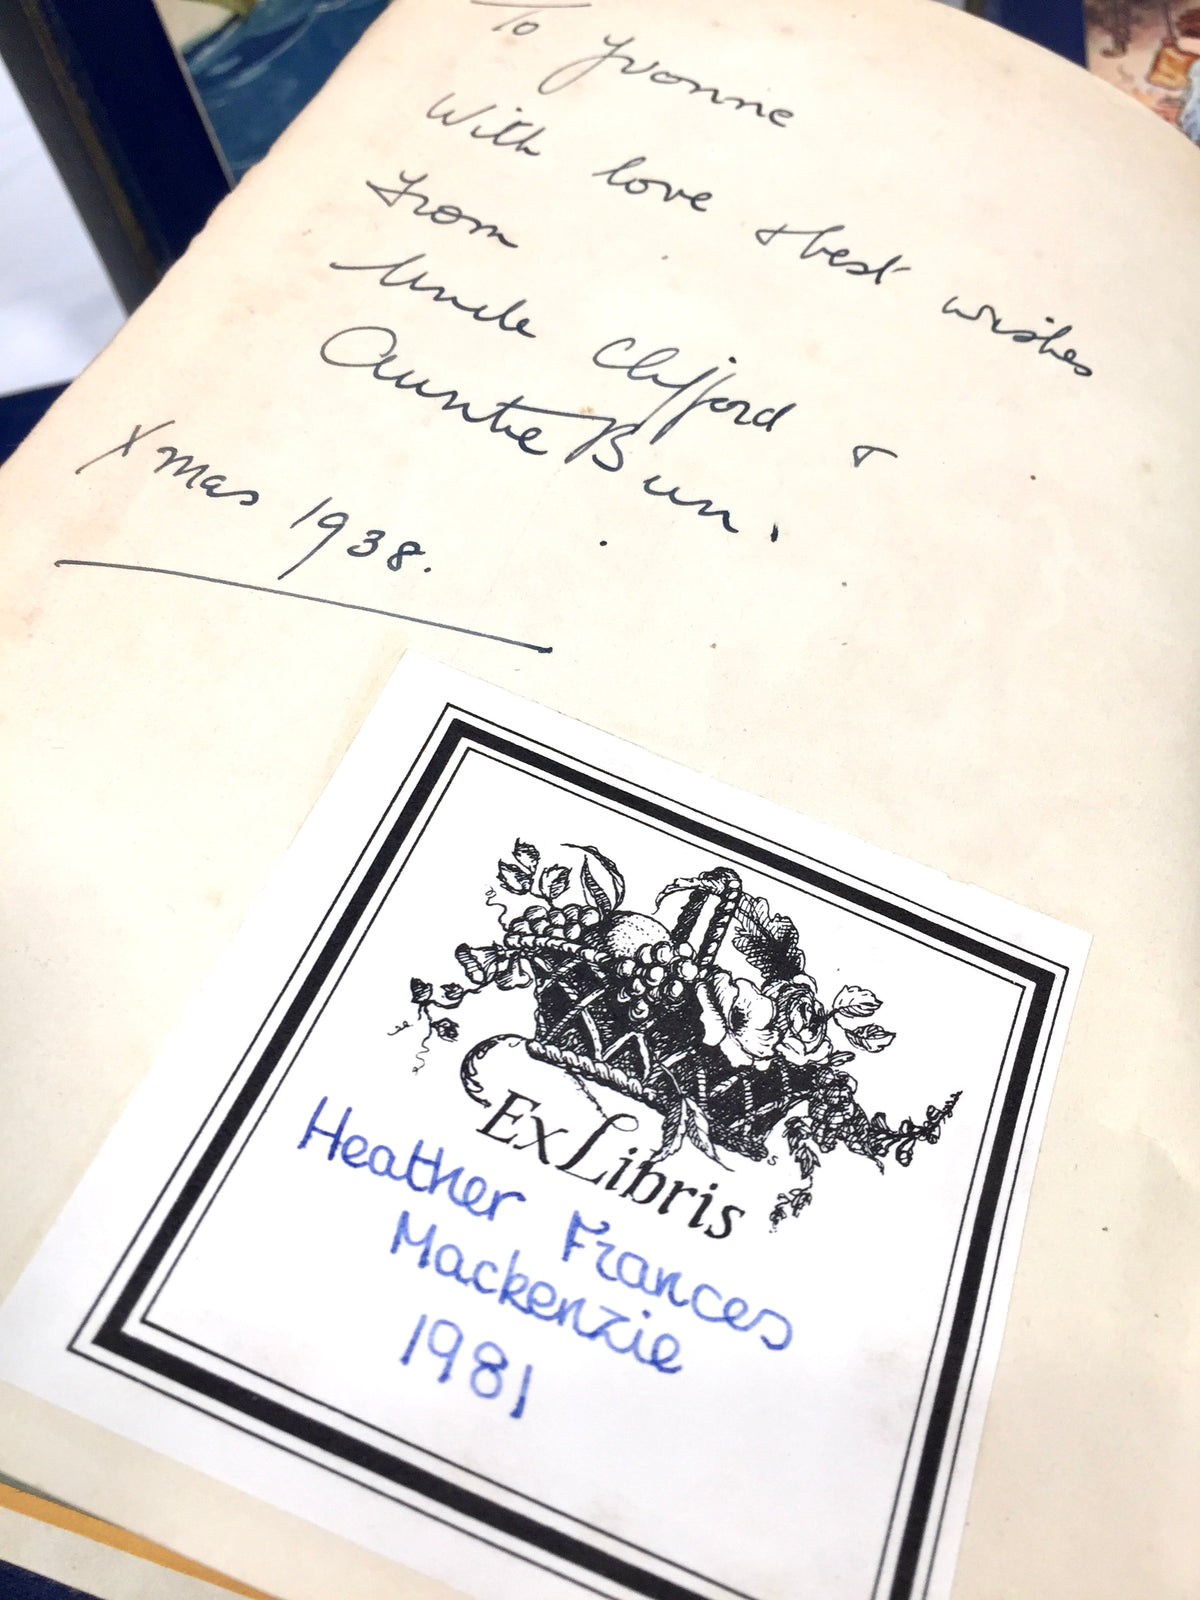 To Yvonne
With love & best wishes
from
Uncle Clifford &
Auntie Bun.
Xmas 1938.
Ex Libris
Heather Frances
Mackenzie
1981